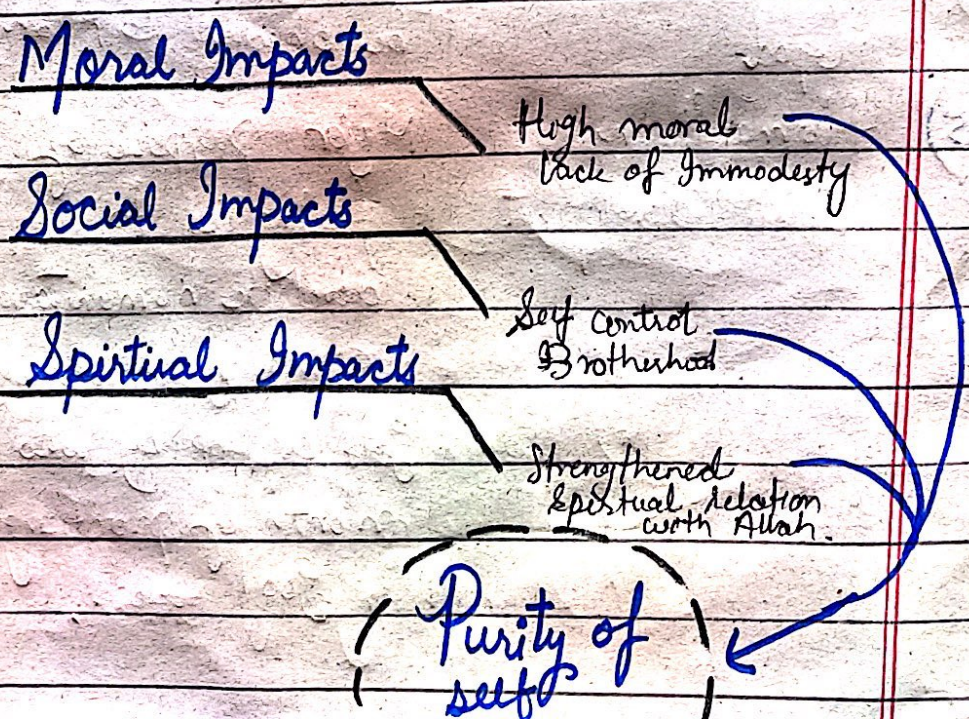 Moral Impacts
High moral
Lack of Immodesty
Social Impacts
Self control
Brotherhood
Spirtual Impacts
Strengthened
Spirtual relation
with Allah.
Purity of
self